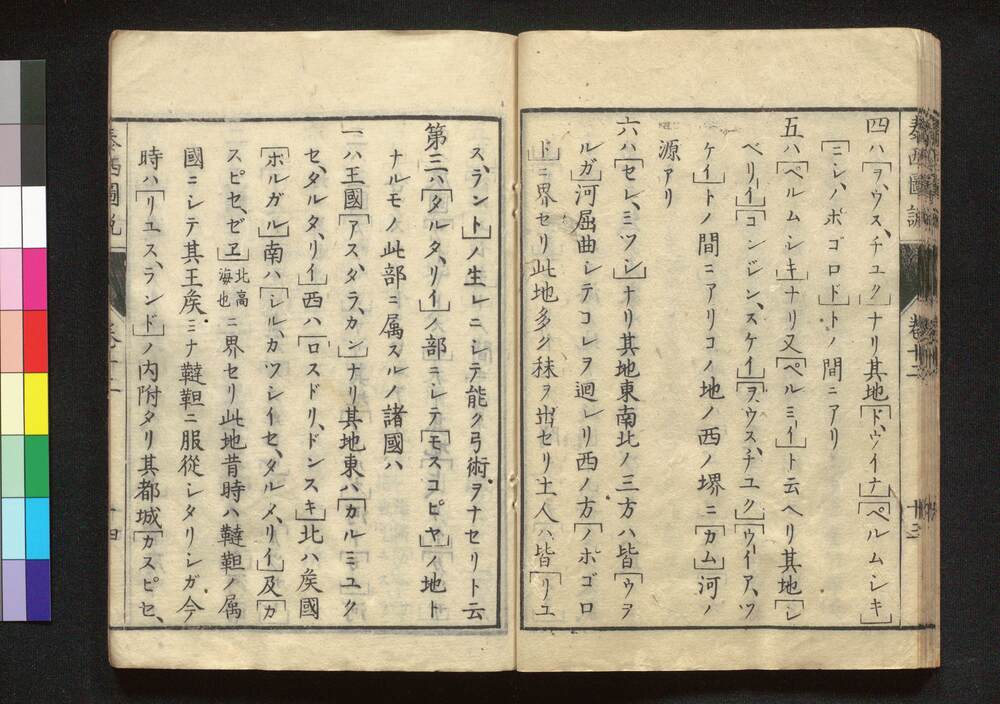 泰西圖説
卷十二
十三
四ハ「ヲ、ウス、チユク」ナリ其地「ド、ウイナ」「ペルムシキ」
「ニシノポゴロド」トノ間ニアリ
五ハ「ペルムシキ」ナリ又「ペルミイ」ト云ヘリ其地「シ
ベリイ」「コンジン、スケイ」「ヲ、ウス、チユク」「ウイア、ツ
ケイ」トノ間ニアリコノ地ノ西ノ堺ニ「カム」河ノ
源アリ
六ハ「セレ、ミツシ」ナリ其地東南北ノ三方ハ皆「ウヲ
ルガ」河屈曲シテコレヲ廻レリ西ノ方「ノポゴロ
ド」ニ界セリ此地多ク秣ヲ出セリ土人ハ皆「リユ
ス、ラント」ノ生レニシテ能ク弓術ヲナセリト云
第三ハ「タルタ、リイ」ノ部ニシテ「モスコビヤ」ノ地ト
ナルモノ此部ニ属スルノ諸國ハ
一ハ王國「アス、タラ、カン」ナリ其地東ハ「カルミユク
セ、タルタ、リイ」西ハ「ロスドリ、ドンスキ」北ハ矦國
「ボルガル」南ハ「シル、カツシイセ、タルメ、リイ」及「カ
スピセ、ゼヱ」北高海也ニ界セリ此地昔時ハ韃靼ノ属
國ニシテ其王矦ミナ韃靼ニ服從シタリシガ今
時ハ「リユス、ランド」ノ内附タリ其都城「カスピセ、
泰西圖説
卷十二
十四